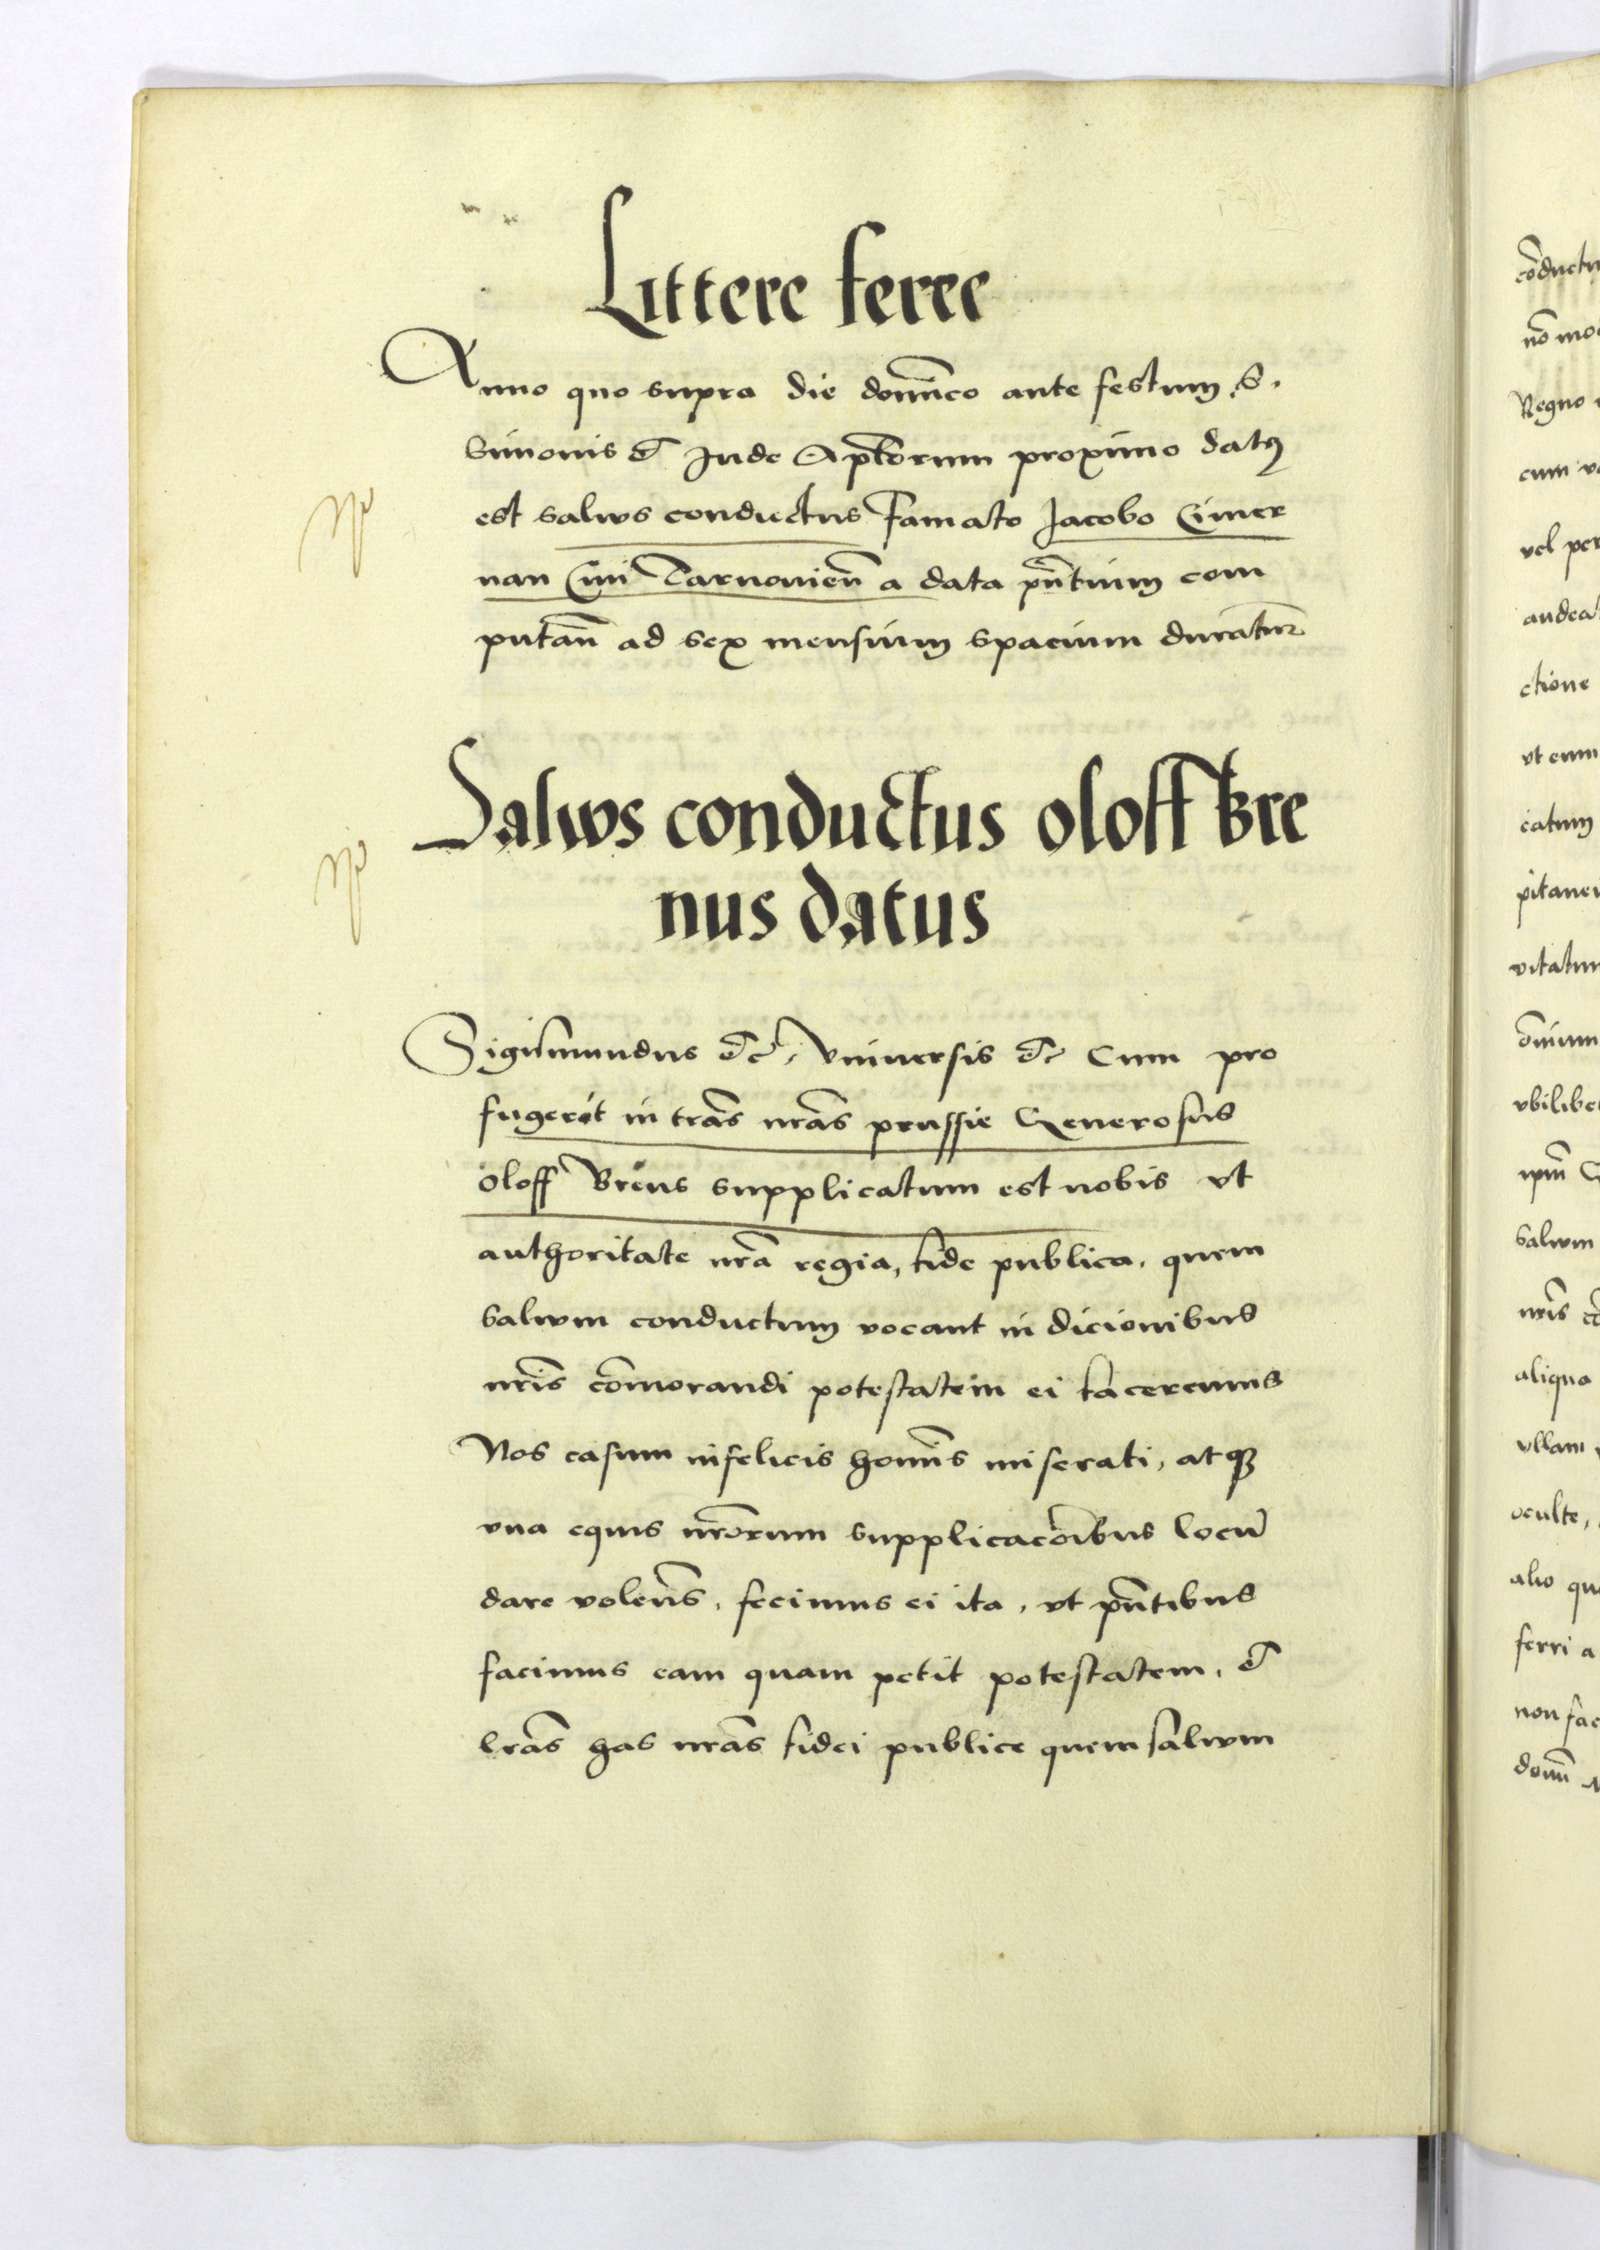 Littere feree
Anno quo supra die dominico ante festum S.
Simonis et Jude Aplorum proximo datus
est salvus conductus Famato Jacobo Cimer
nan Civi Tarnovien̄ a data pn̄tium com
putan̄ ad sex mensium spacium duratur
Salvus conductus oloff Bre
nus datus
Sigismundus etc. Vniversis etc Cum pro
fugerit in tras̄ nras̄ prussie Generosus
oloff Brens supplicatum est nobis vt
authoritate nrā regia, fide publica, quem
salvum conductum vocant in dicionibus
nris̄ com̄orandi potestatem ei faceremus
Nos casum infelicis homīs miserati, atq3
vna equis nrōrum supplicacoībus locū
dare volens̄, fecimus ei ita, vt pn̄tibus
facimus eam quam petit potestatem, et
lras̄ has nras̄ fidei publice quem salvum
cōductu
nō mo
Regno
cum
vel per
audea
ctione
vt eum
catum
pitanei
vitatum
om̄ium
vbilibe
ipm̄
Salvum
nris̄
aliqua
vllam
oculte,
alio qu
ferri a
non fac